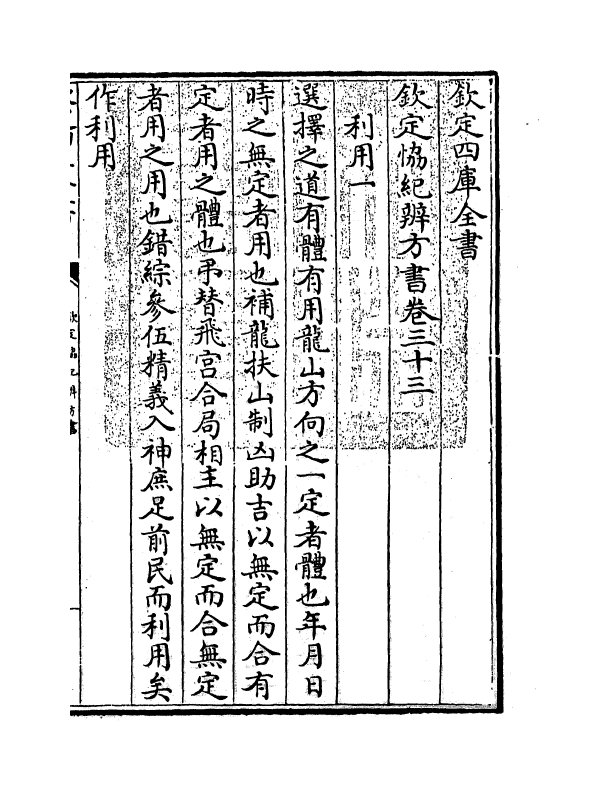 欽定四庫全書
欽定恊紀辨方書卷三十三
利用一
選擇之道有體有用龍山方向之一定者體也年月日
時之無定者用也補龍扶山制凶助吉以無定而合有
定者用之體也弔替飛宫合局相主以無定而合無定
者用之用也錯綜參伍精義入神庶足前民而利用矣
作利用
欽定協紀辨方書